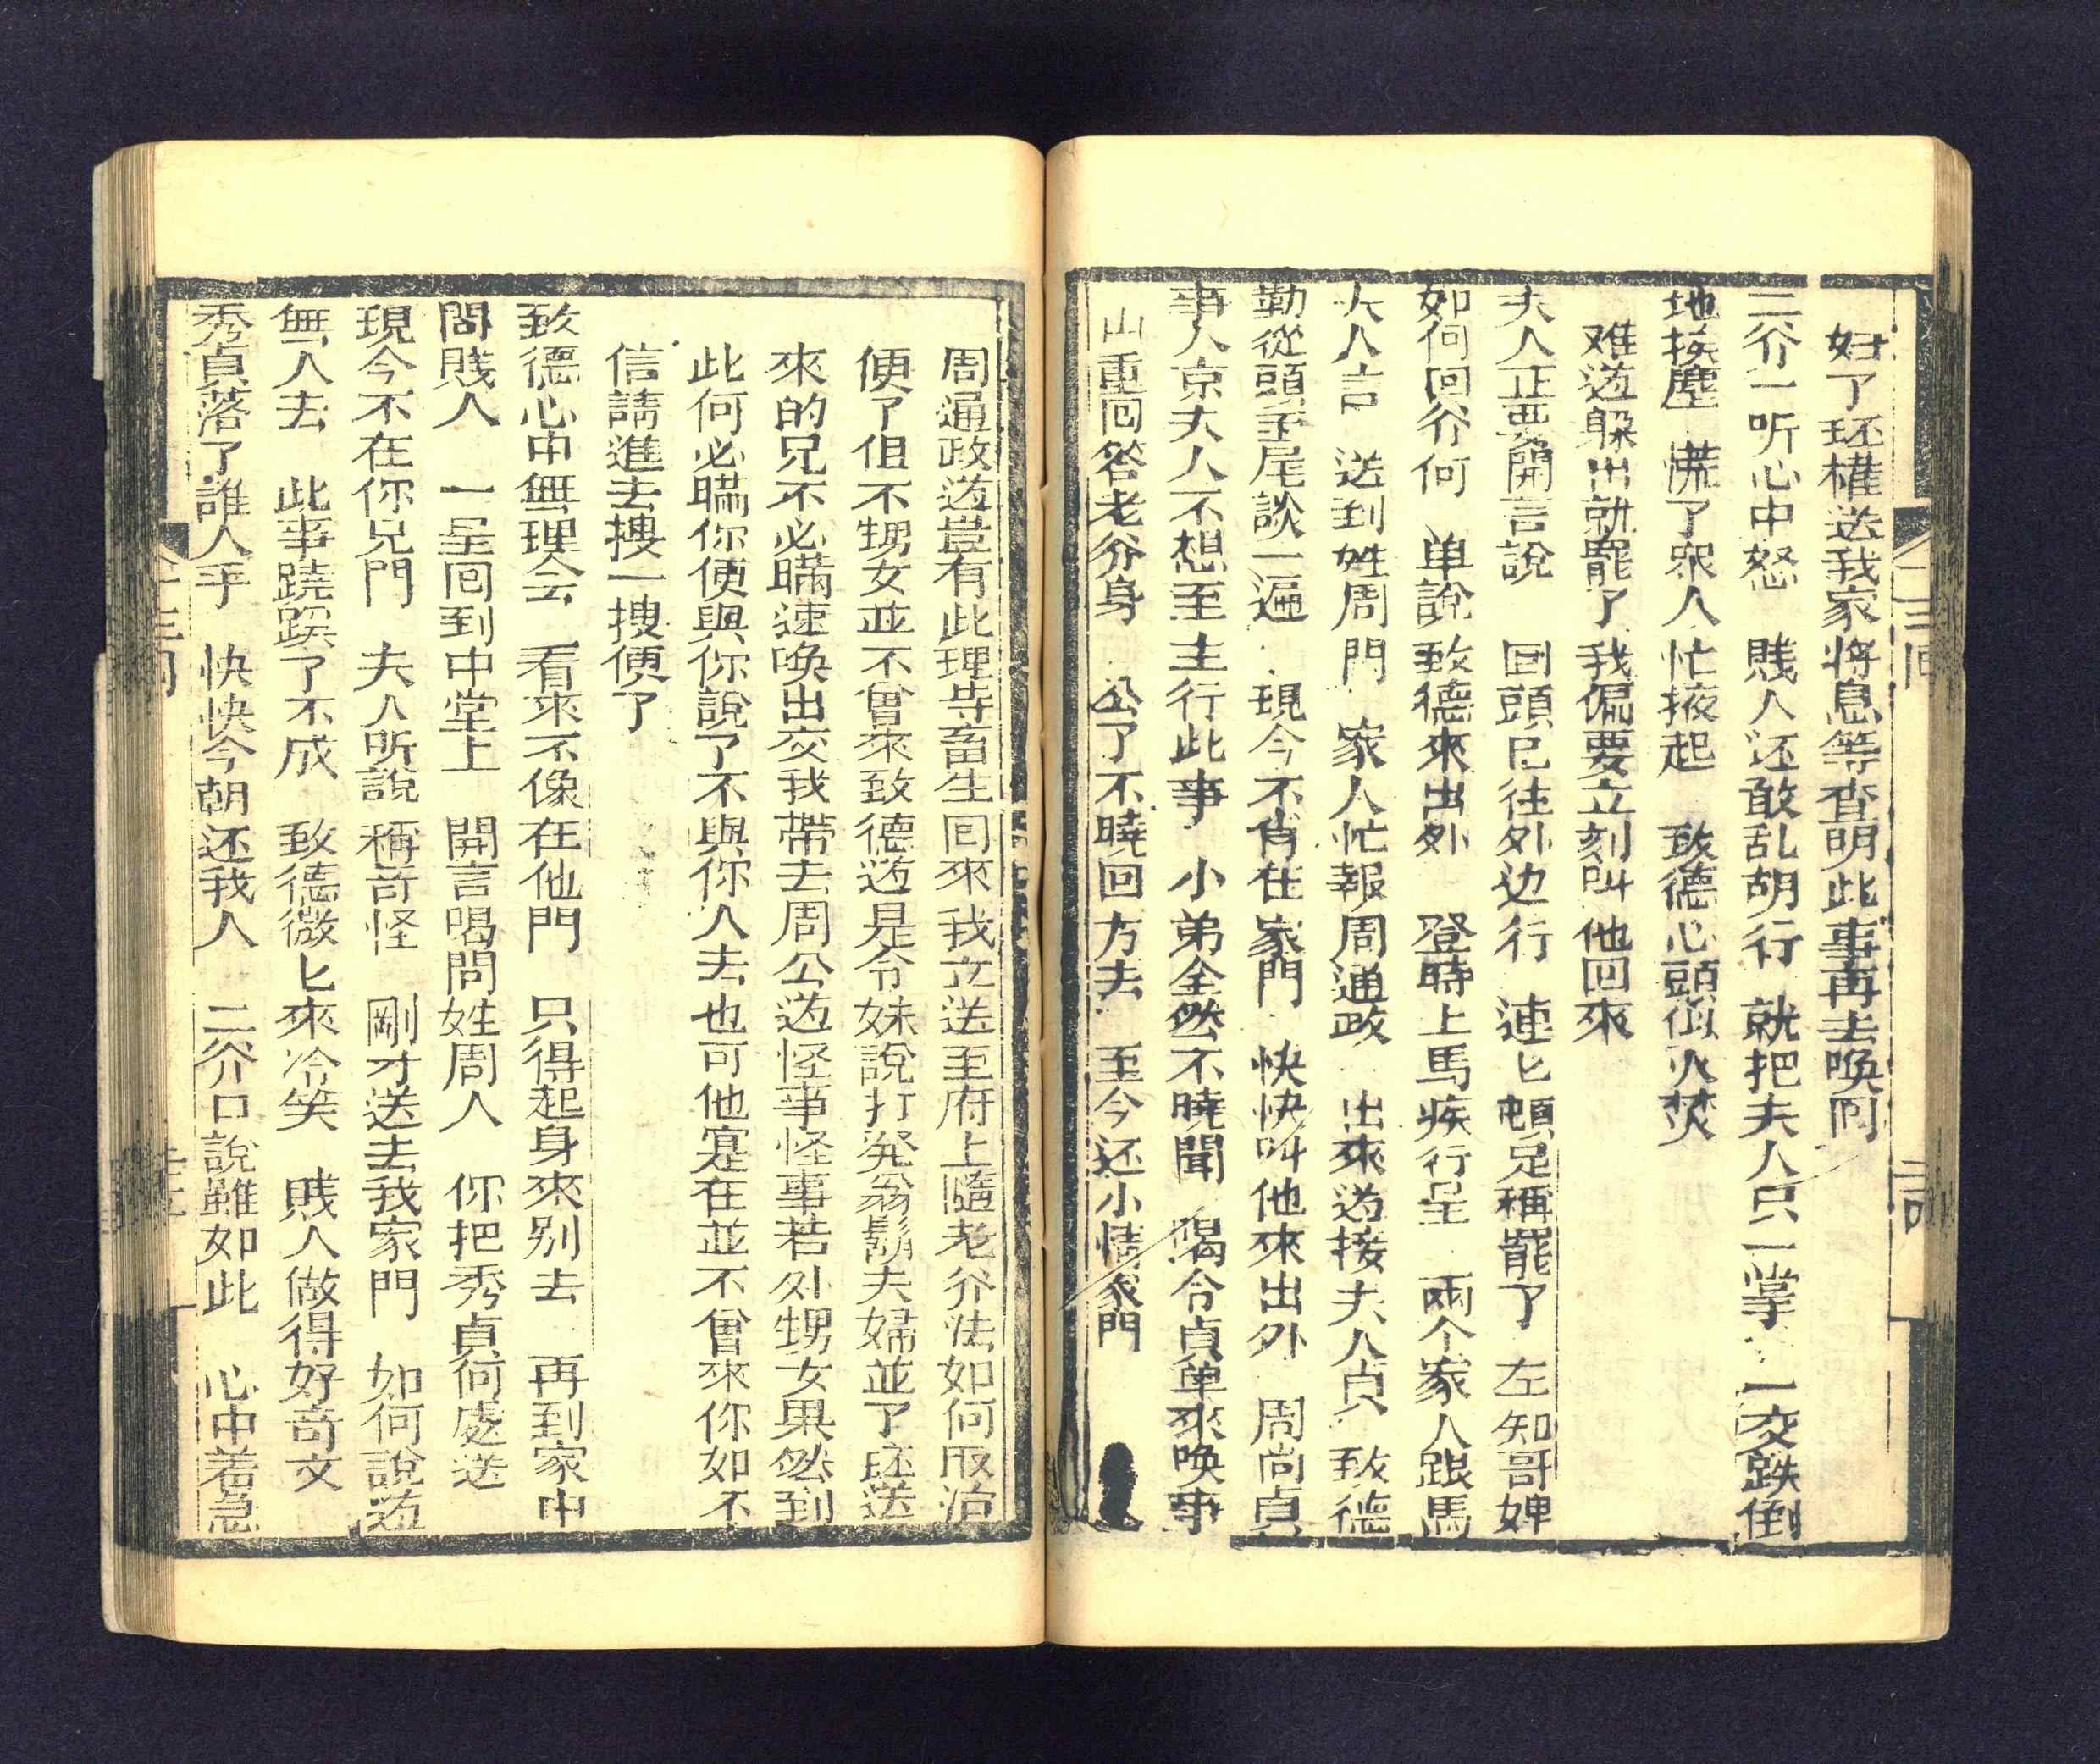 妇了环權送我家將息等查明此事再去喚囘
二爷一听心中怒　賎人还敢乱胡行　就把夫人只一掌　一交跌倒
地挨塵　慌了衆人忙掖起　致德心頭似火焚
难道躱出就罷了我偏要立刻叫他回來
夫人正要開言說　回頭已往外边行　連匕頓足稱罷了　左知哥婢
如何回爷何　单說致德來出外　登時上馬疾行呈　兩个家人跟馬
夫人言　送到姓周門　家人忙報周通政　出來迯接夫人貞　致德
勤從頭至尾談一遍　現今不肯在家門　快快叫他來出外　周尚貞
事人京夫人不想至主行此事　小弟全然不曉聞　令貞单來喚事
山重囘答老爷身　公了不曉回方去　至今还小情家門
周通政迯豈有此理寺畜生囘來我立送至府上隨老爷法如何服治
便了但不甥女並不曾來致德迯是令妹說打発翁鬍夫婦並了环送
來的兄不必瞞速喚出交我帶去周公迯怪事怪事若外甥女果然到
此何必瞞你便與你說了不與你人去也可他寔在並不曾來你如不
信請進去搜一搜便了
致德心中無理会　看來不像在他門　只得起身來别去　再到家中
問賎人　一呈囘到中堂上　開言喝問姓周人　你把秀貞何處送
現今不在你兄門　夫人听說稱奇怪　剛才送去我家門　如何說迯
無人去　此事蹺蹊了不成　致德微匕來冷笑　賎人做得好奇文
秀貞落了誰人手　快快今朝还我人　二爷口說雖如此　心中若急